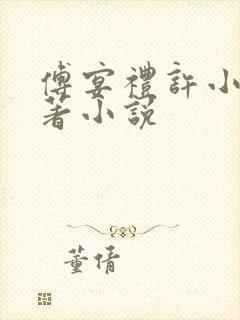 傅宴禮許小
著小說
董倩